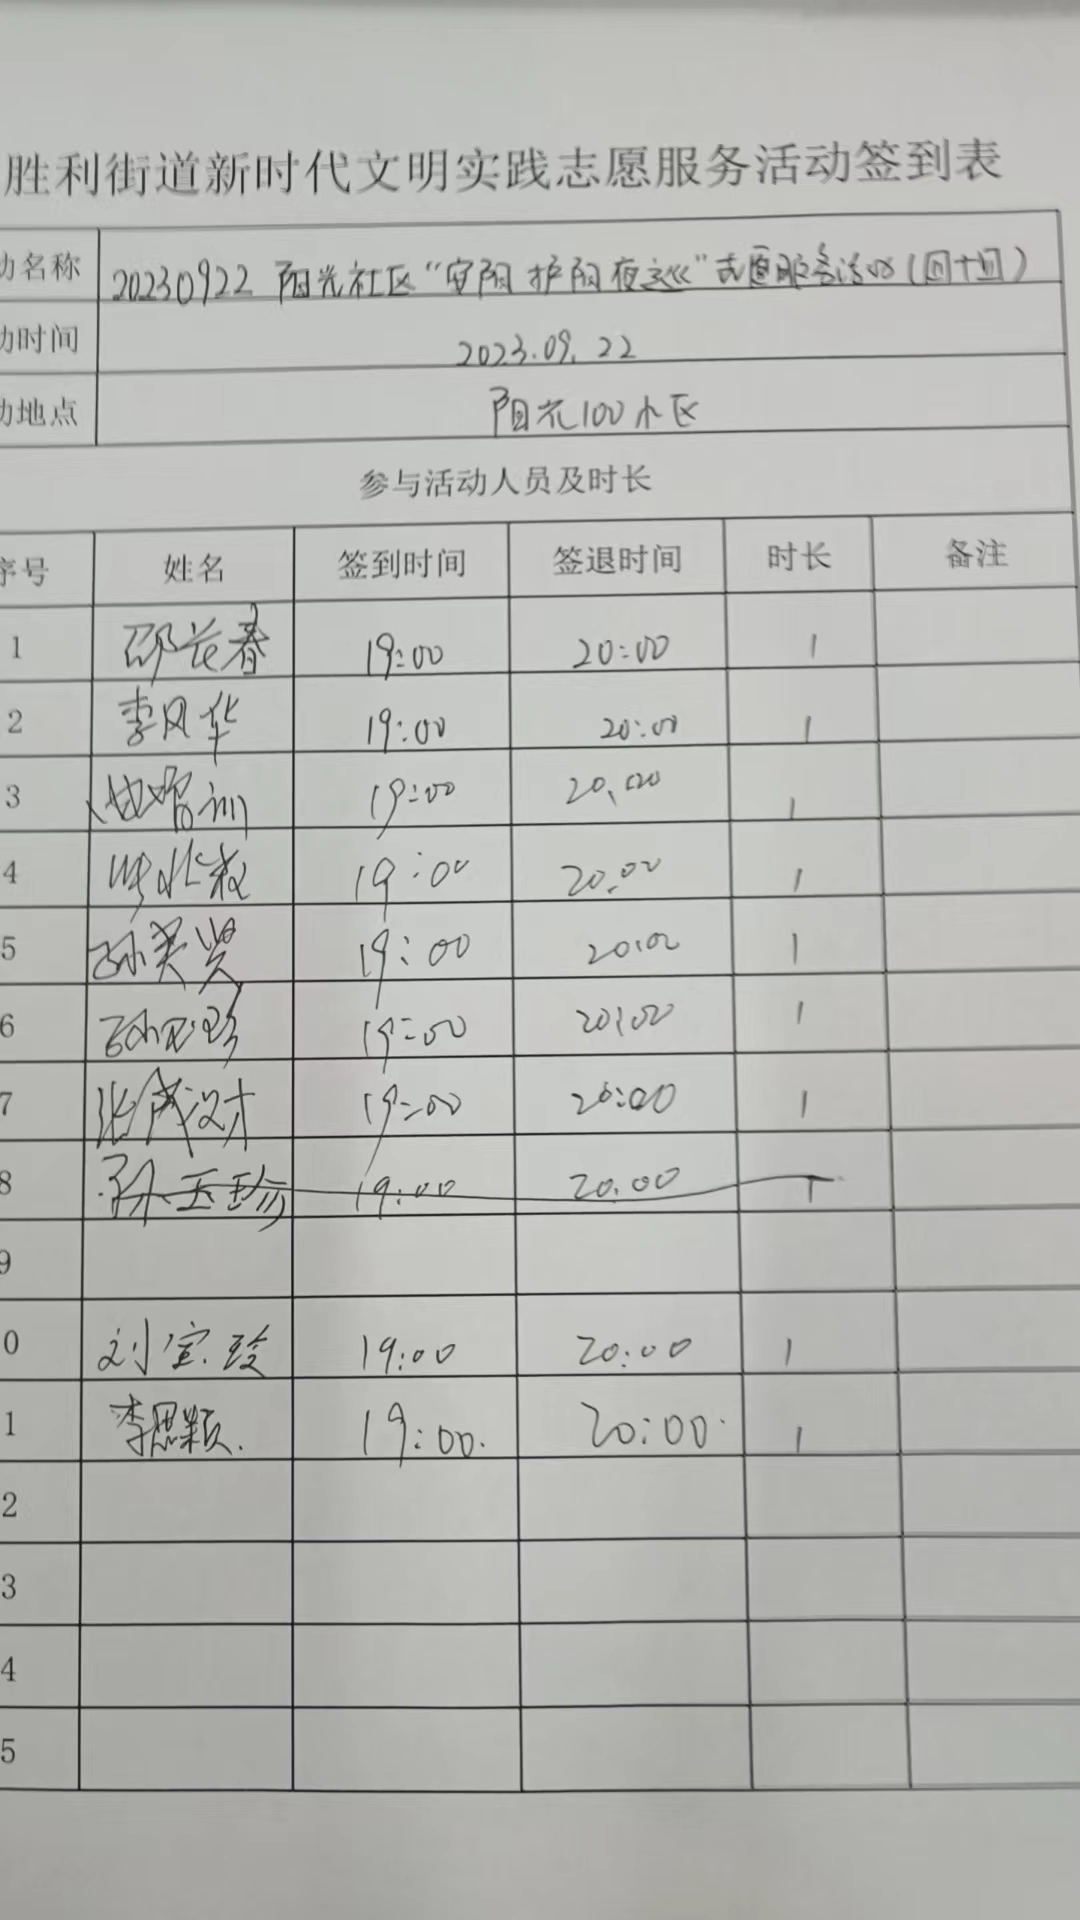 胜利街道新时代文明实践志愿服务活动签到表
动名称 20230922 阳光社区“安阳护阳夜巡”志愿服务活动(四十四)
动时间 2023.09.22
动地点 阳光100小区
参与活动人员及时长
序号 姓名 签到时间 签退时间 时长 备注
1 邵长春 19:00 20:00 1
2 李风华 19:00 20:00 1
3 19:00 20:00 1
4 19:00 20:00 1
5 孙美贤 19:00 20:00 1
6 19:00 20:00 1
7 张成汉才 19:00 20:00 1
8 孙玉珍 19:00 20:00 1
9
0 刘宝玲 19:00 20:00 1
1 李思颖. 19:00. 20:00. 1
2
3
4
5